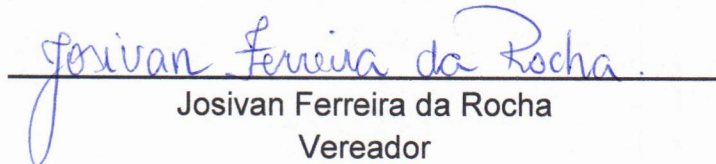 Josivan Ferreira da Rocha.
Josivan Ferreira da Rocha
Vereador